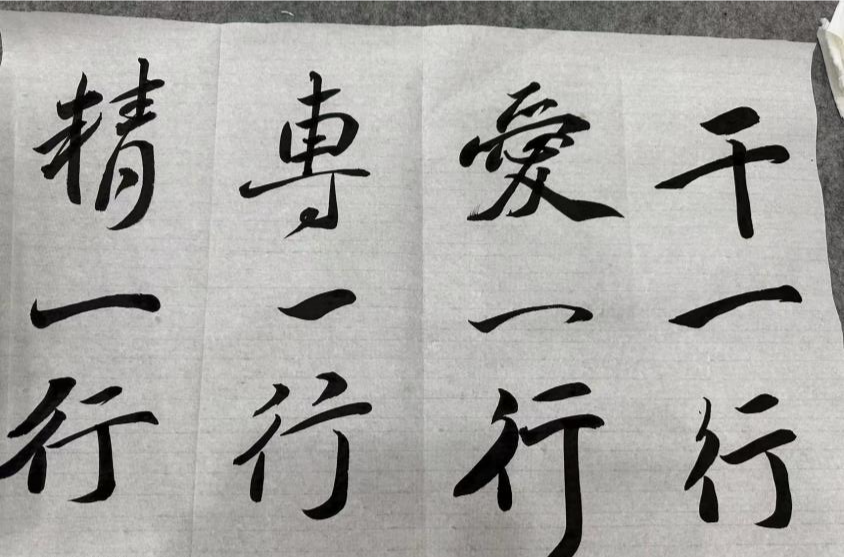 干一行
愛一行
專一行
精一行